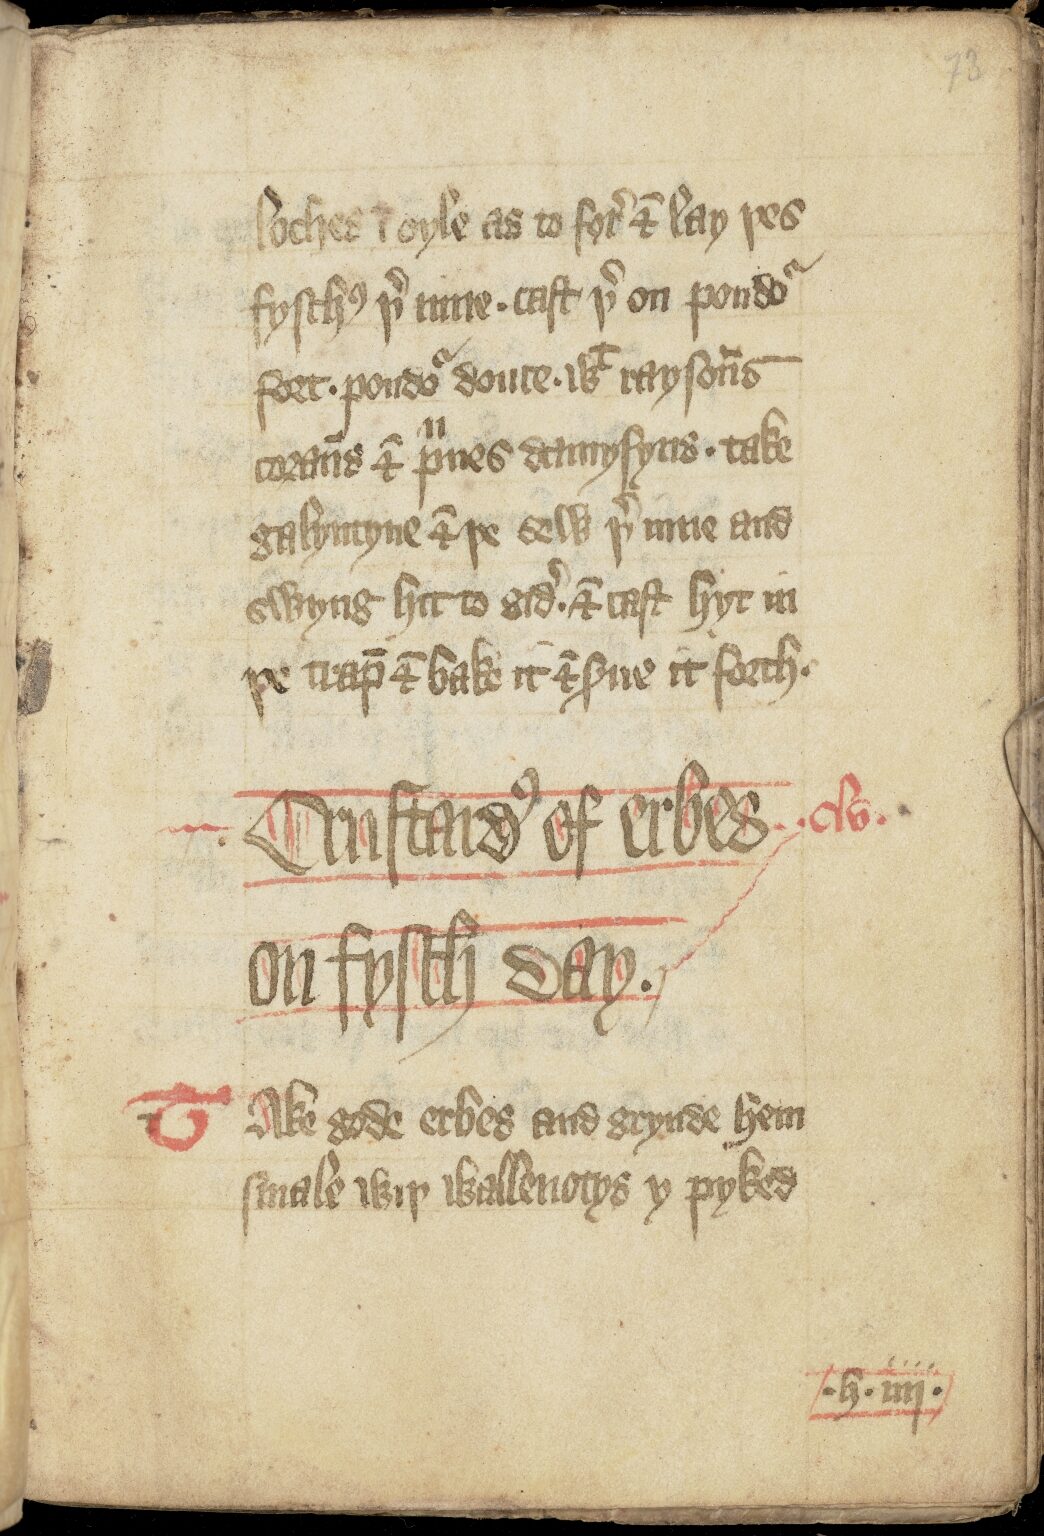 73
loches ī oyle as to for̛ & lay þes
fyschꝰ þ̛ inne · cast þ̛ on poudoᷣ
fort · poudoᷣ douce · wᵗ raysōns
corans̄ & p̈nes damysyns · take
galyntyne & þe sew þ̛ inne and
swyng hit to gid̛ · & cast hyt in
þe trap̄ & bake it & s̛ue it forth ·
Crustardꝰ of erbes · clv ·
on fysch day ·
Take gode erbes and grynde hem
smale wiþ wallenotys y pyked
· h · iiij ·